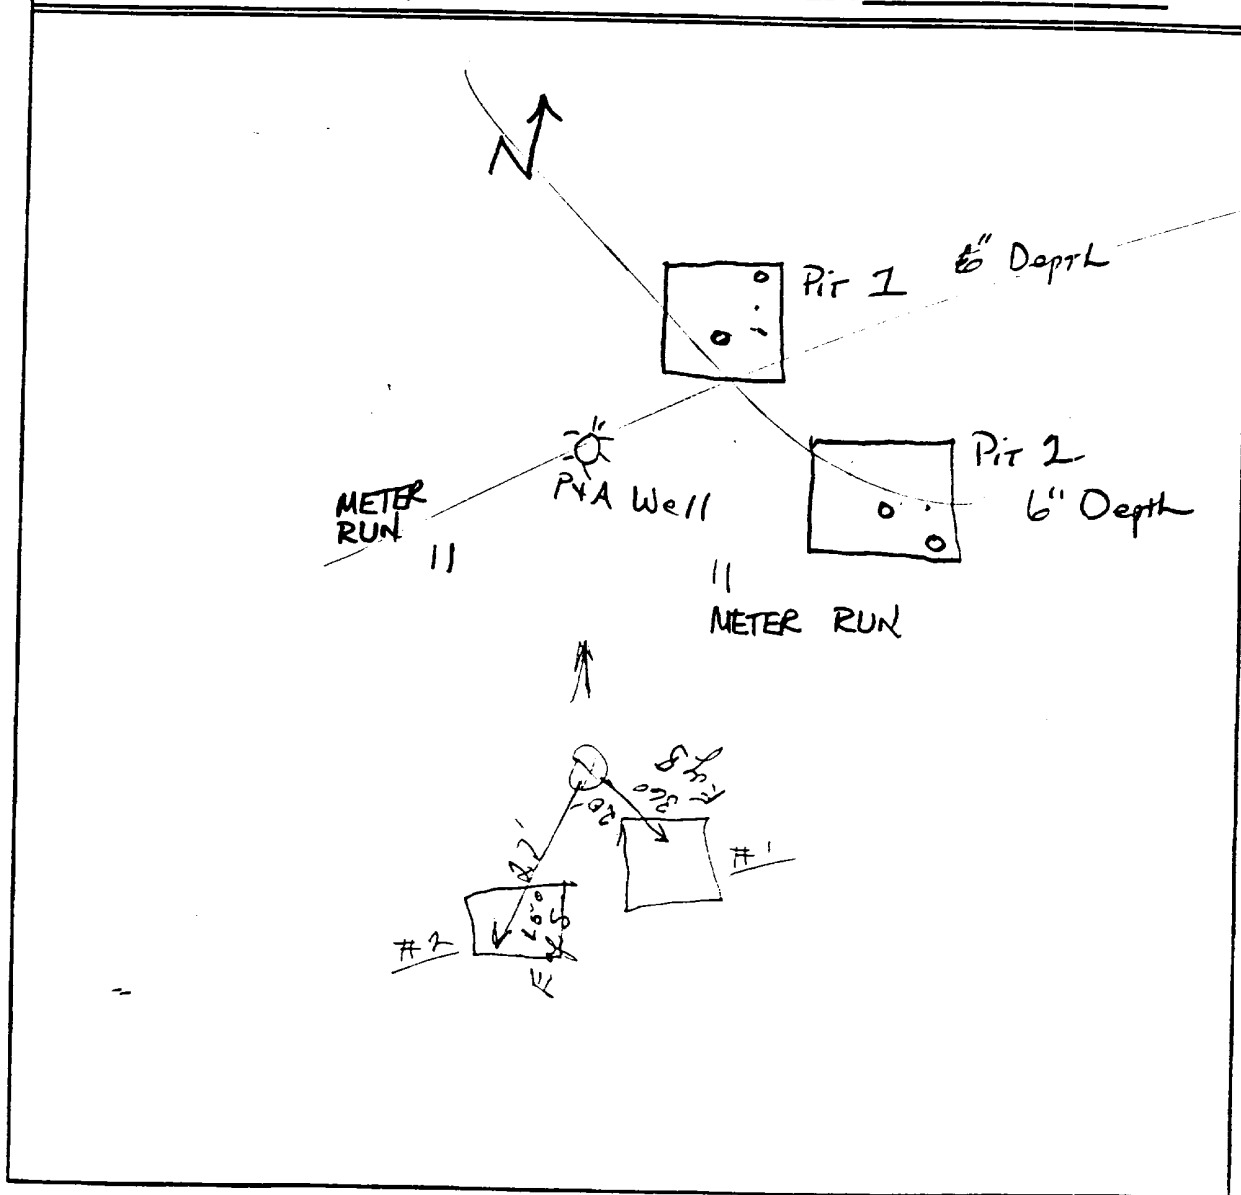 N
Pit 1
6" Depth
Pit 2
6" Depth
P&A Well
METER
RUN
METER RUN
20'
22'
#1
#2